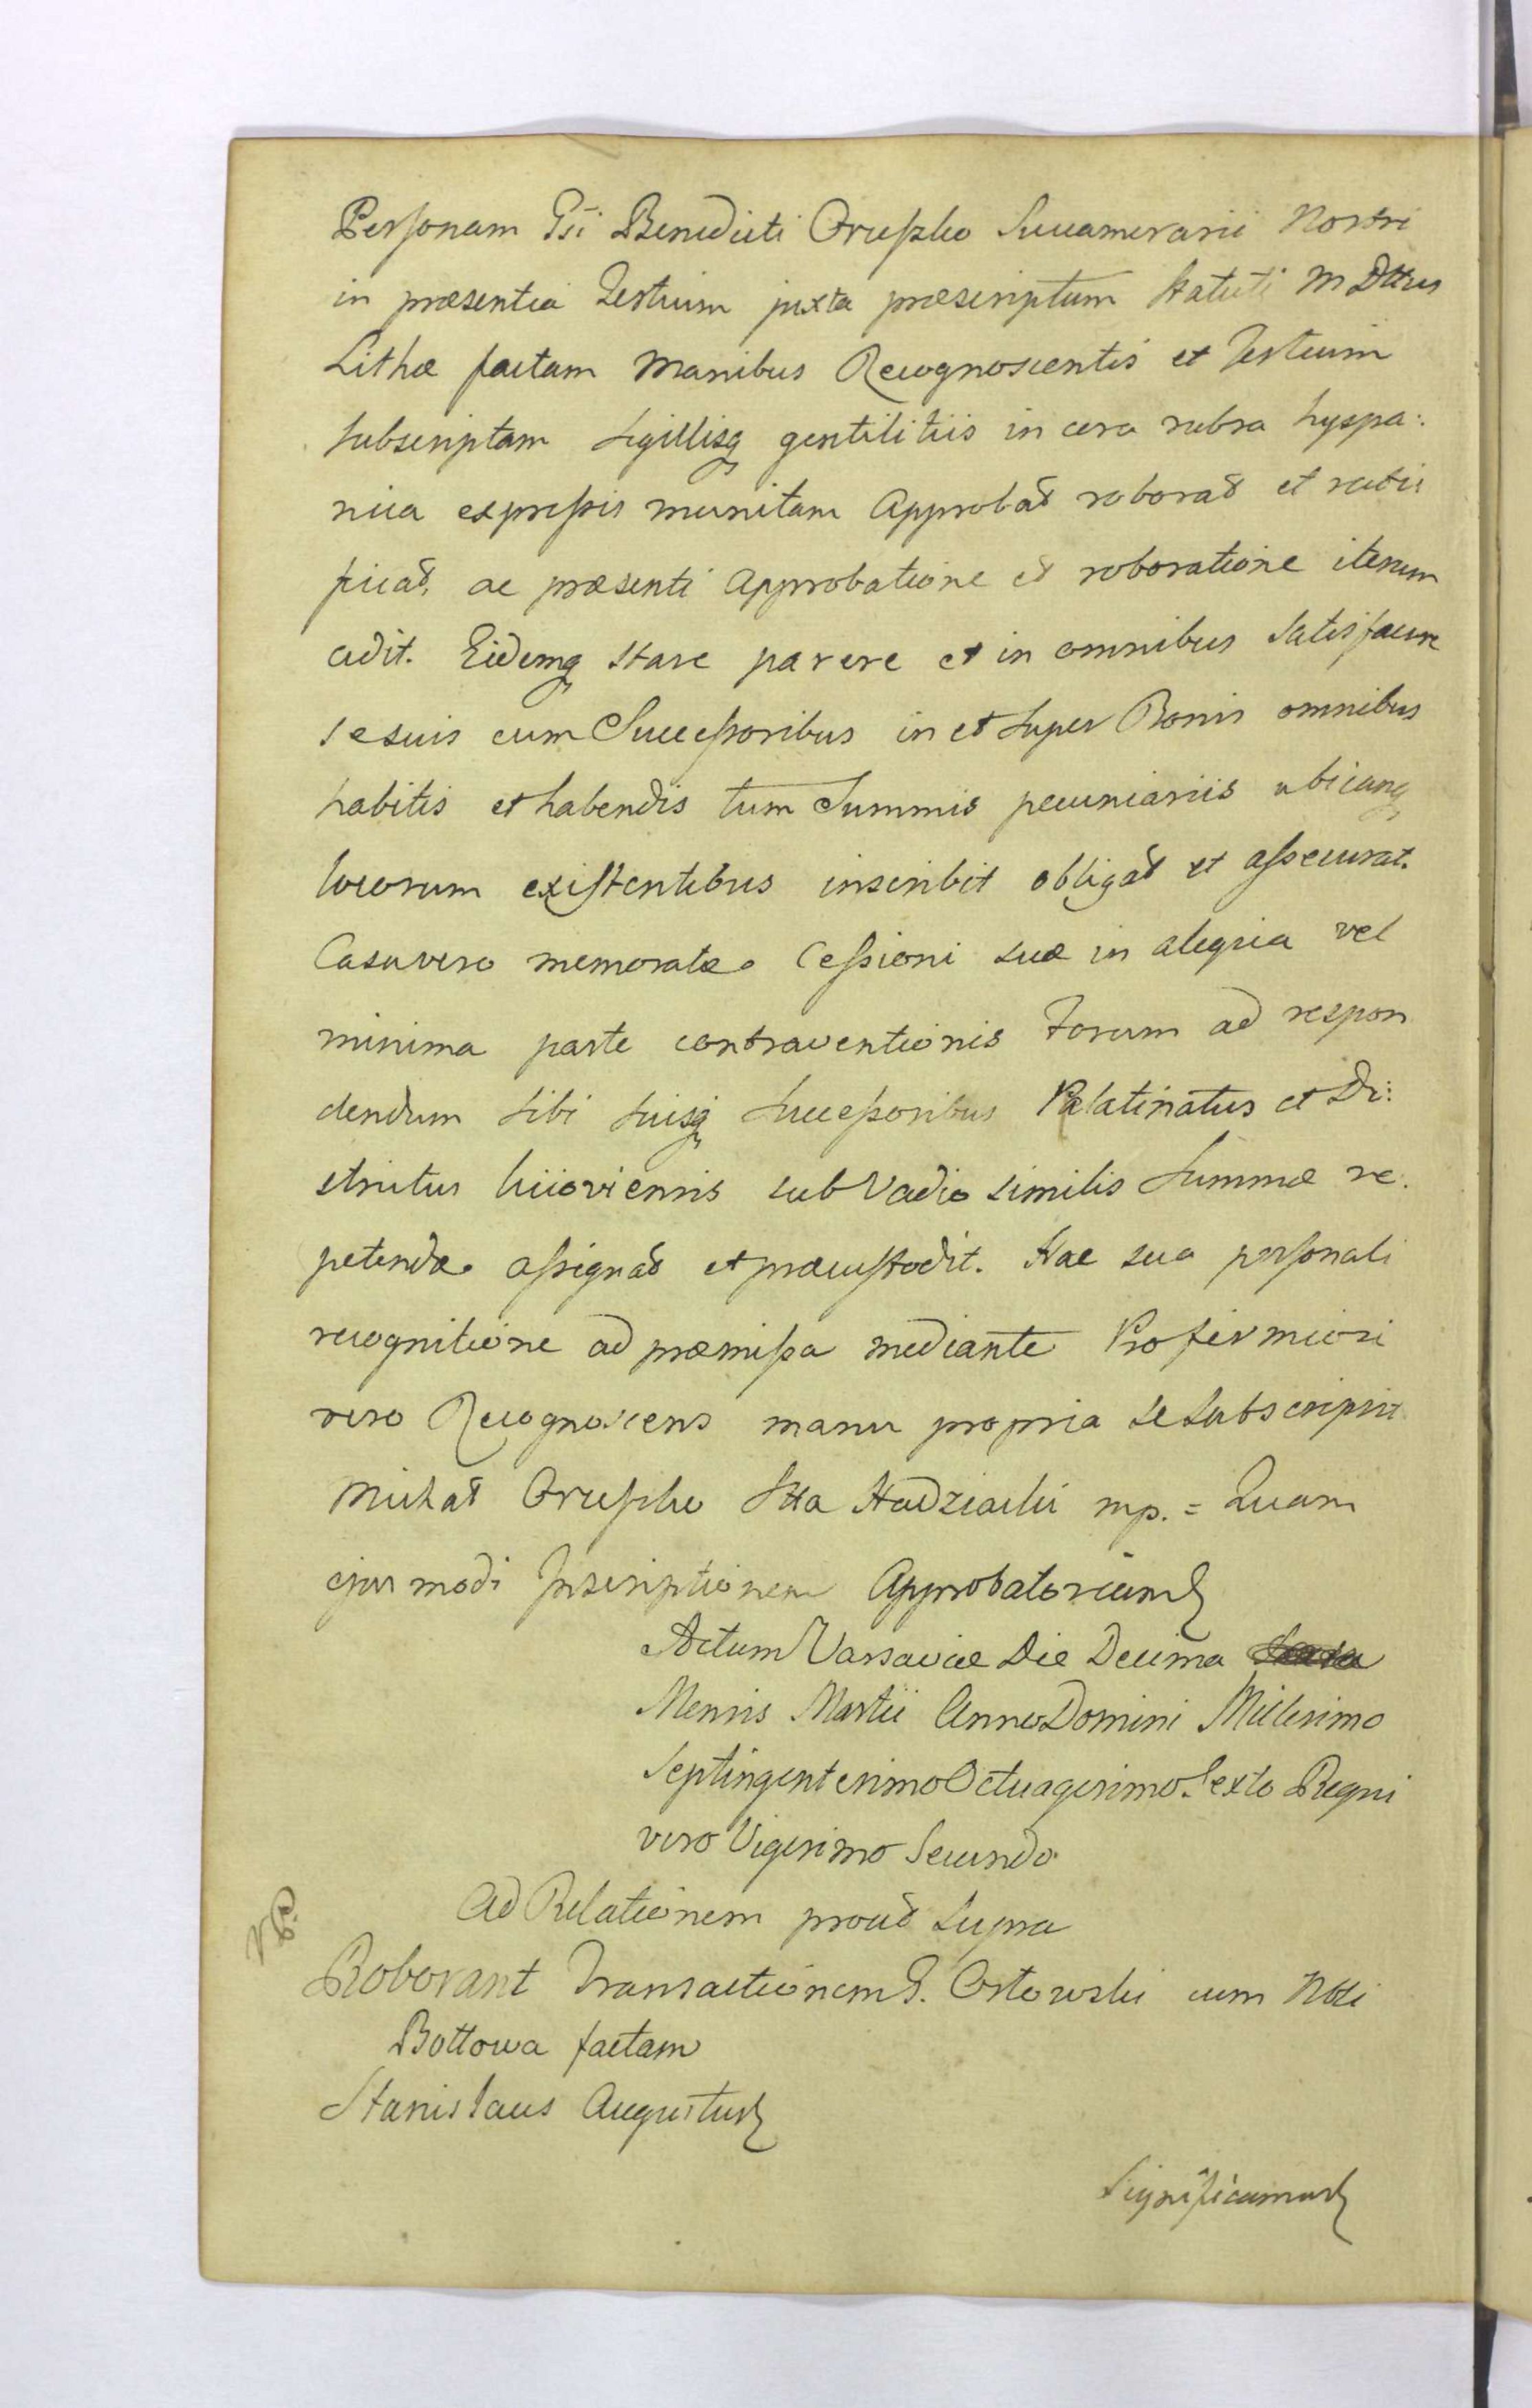 Personam Gsi Benedicti Oreszko Succamerarii Nostri
in præsentia Testium juxta præscriptum Statuti M Dttus
Lithæ factam Manibus Recognoscentis et Testium
subscriptam Sigillisq gentilitiis in cera rubra hyspa:
nica expressis munitam Approbat roborat et rati:
ficat, ac præsenti Approbatione et roboratione iterum
cedit. Eidemq stare parere et in omnibus Satisfacere
se suis cum Successoribus in et super Bonis omnibus
habitis et habendis tum Summis pecuniariis ubicunq
locorum existentibus inscribit obligat et assecurat.
Casu vero memoratæ Cessioni suæ in aliqua vel
minima parte contraventionis Forum ad respon
dendum sibi suisq Successoribus Palatinatus et Di:
strictus Kiioviensis sub Vadio similis Summæ re:
petendæ assignat et præcustodit. Hac sua personali
recognitione ad præmissa mediante Pro firmiori
vero Recognoscens manu propria se subscripsit
Michał Oreszko Stta Hadziacki mp. = Quam
ejusmodi Inscriptionem Approbatoriam
Actum Varsaviæ Die Decima
Mensis Martii Anno Domini Millesimo
Septingentesimo Octuagesimo Sexto Regni
vero Vigesimo Secundo
Ad Relationem prout supra
Roborant Transactionem G. Ostowski cum Nbli
Bottowa factam
Stanislaus Augustus
Significamus